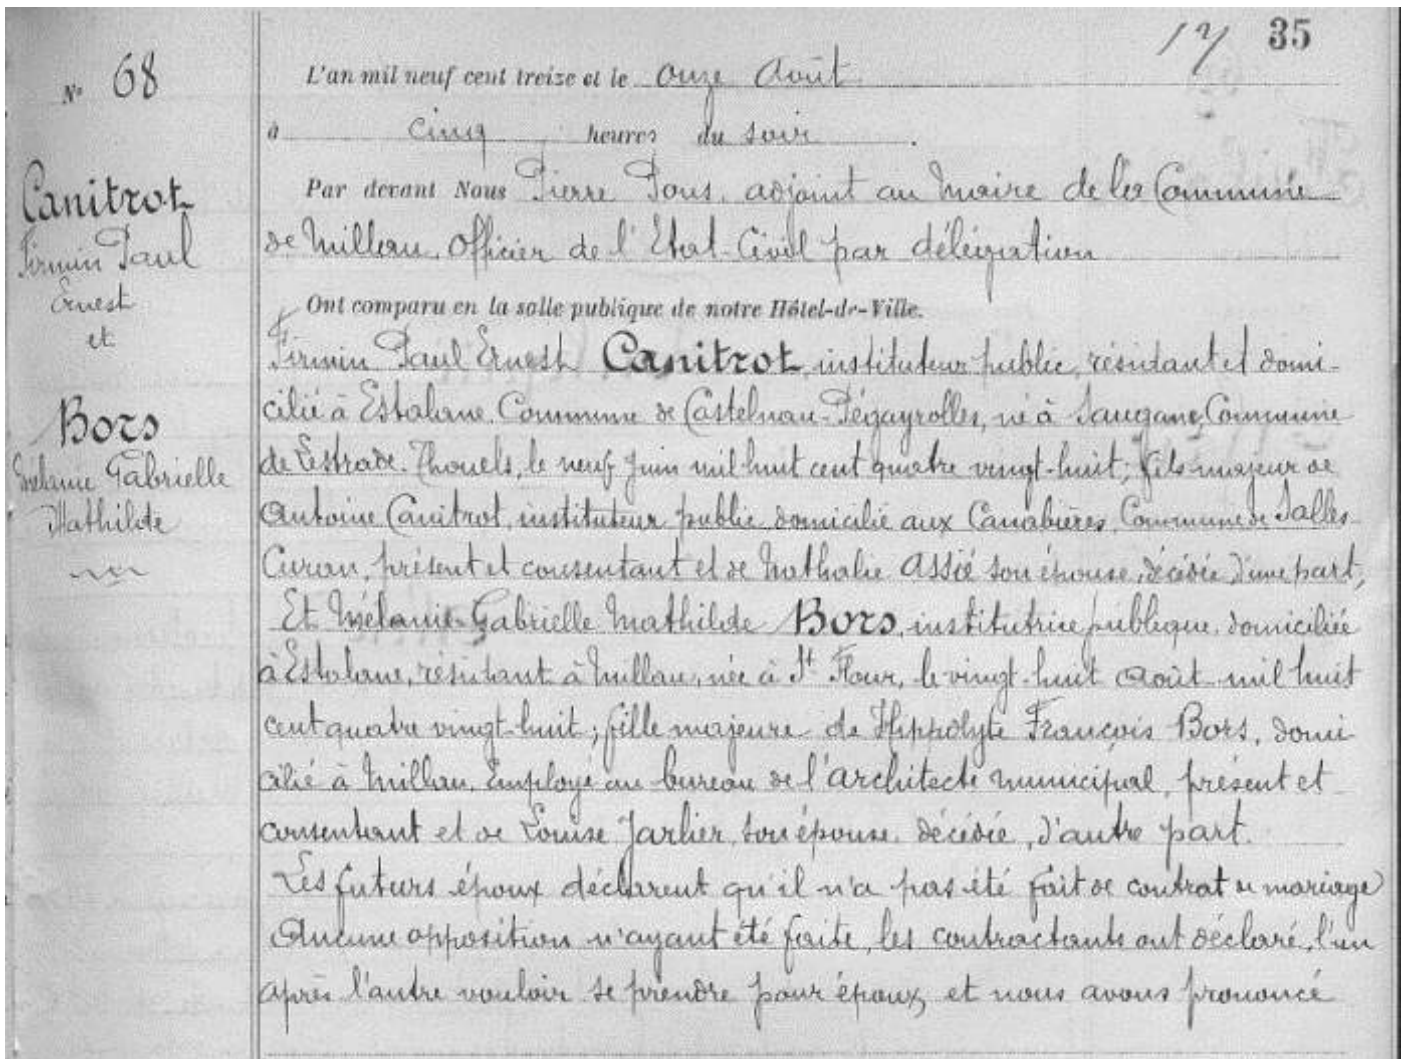 12/ 35
N° 68
L'an mil neuf cent treize et le onze Août
à cinq heures du soir.
Canitrot
Firmin Paul
Ernest
et
Bors
Mélanie Gabrielle
Mathilde
Par devant Nous Pierre Pons, adjoint au Maire de la Commune
de Millau, Officier de l'Etat-Civil par délégation
Ont comparu en la salle publique de notre Hôtel-de-Ville.
Firmin Paul Ernest Canitrot, instituteur public, résidant et domi-
cilié à Estalane, Commune de Castelnau-Pégayrolles, né à Saugane, Commune
de Lestrade-Thouels, le neuf Juin mil huit cent quatre vingt-huit; fils majeur de
Antoine Canitrot, instituteur public domicilié aux Canabières, Commune de Salles-
Curan, présent et consentant et de Nathalie Assié son épouse, décédée, d'une part,
Et Mélanie Gabrielle Mathilde Bors, institutrice publique, domiciliée
à Estalane, résidant à Millau, née à St Flour, le vingt-huit Août mil huit
cent quatre vingt-huit; fille majeure de Hippolyte François Bors, domi
cilié à Millau, Employé au bureau de l'architecte municipal, présent et
consentant et de Louise Jarlier, son épouse, décédée, d'autre part.
Les futurs époux déclarent qu'il n'a pas été fait de contrat de mariage
Aucune opposition n'ayant été faite, les contractants ont déclaré, l'un
après l'autre vouloir se prendre pour époux, et nous avons prononcé